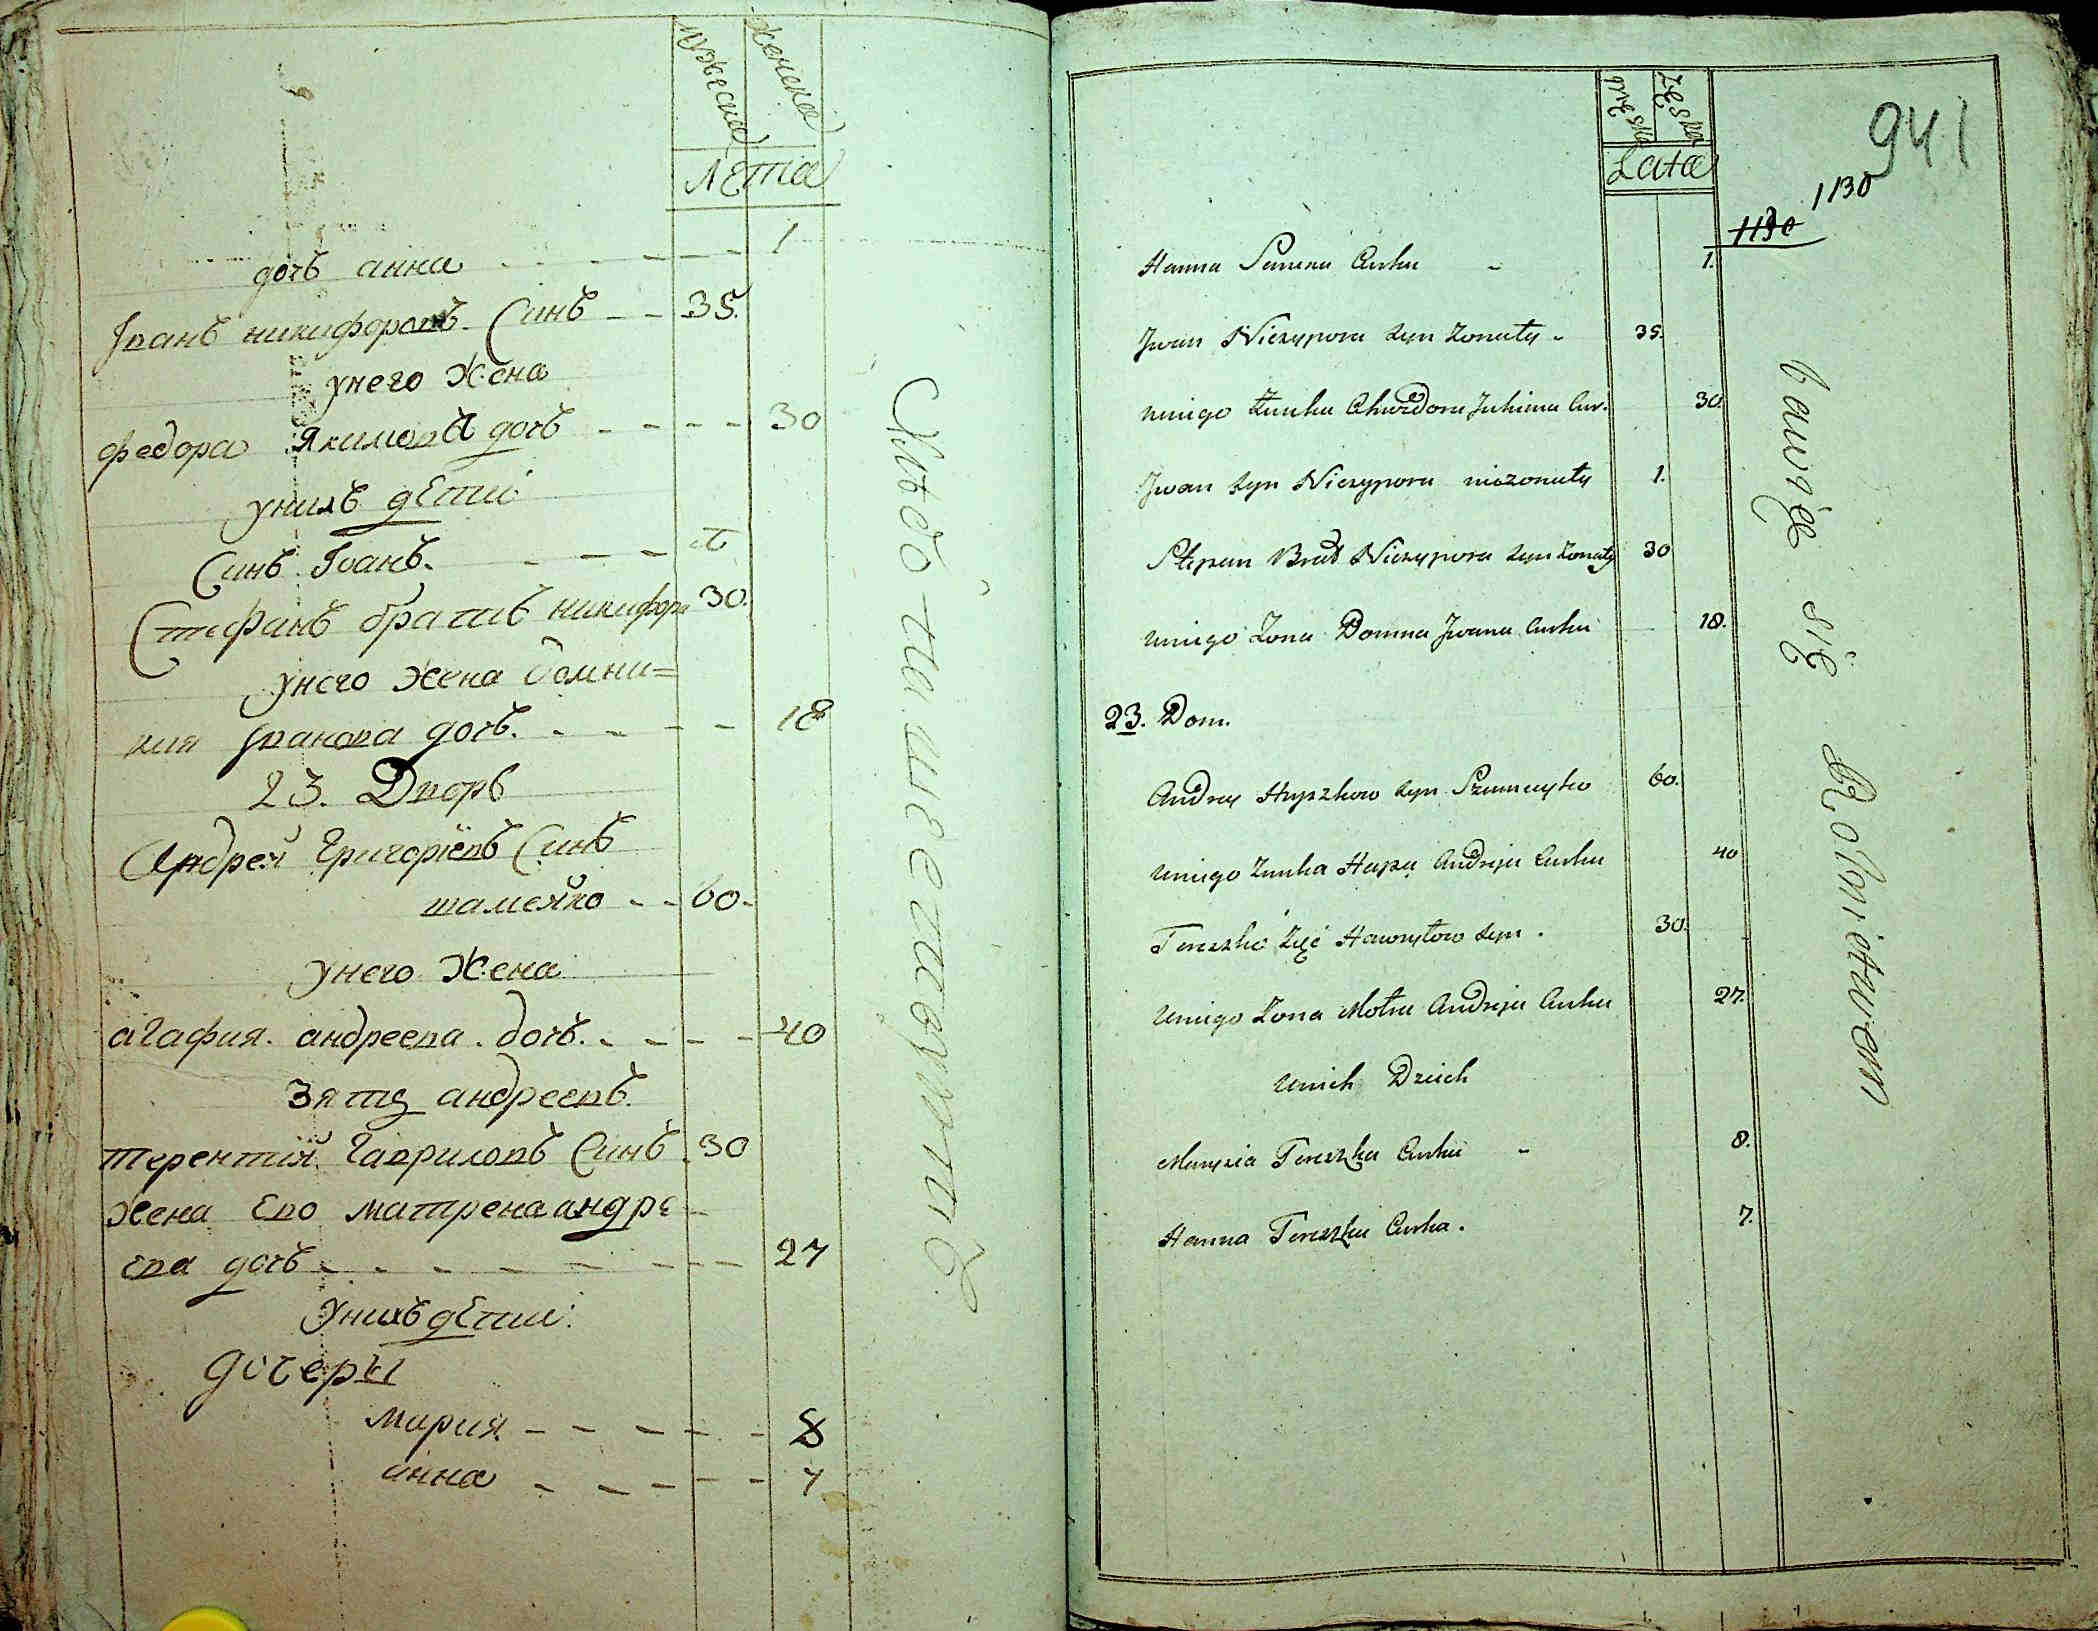 мужеска женска
лета
дочь анна 1
Іванъ никифоровъ Синъ 35.
унего жена
федора Якимова дочь 30
унихъ дети
Синъ Іванъ. 1
Стефанъ братъ никифора 30.
унего жена домни=
кия Іванова дочь. 18
23. Дворъ
Андрей Григорієвъ Синъ
шамейко 60.
унего жена
агафия. андреева. дочь. 40
Зять андреевъ.
терентій Гавриловъ Синъ 30
жена Ево матрена андре
ева дочь 27
унихъ дети:
дочеры
мария 8
анна 7
męska żęska
Lata
941
1130
1130
Hanna Semena Curka 1.
Jwan Niczypora syn żonaty 35.
uniego Żunka Chwedora Juhima Cur. 30.
Jwan syn Niczypora nieżonaty 1.
Stepan Brat Niczypora syn żonaty 30
uniego Żona Domna Jwana Curka 18.
23. Dom.
Andrey Hryszkow syn Szumeyko 60.
uniego Żunka Hapa Andreja Curka 40
Tereszko Zęć Hawryłow syn. 30.
uniego Żona Motra Andreja Curka 27.
unich Dzieci
Marysia Tereszka Curka 8.
Hanna Tereszka Curka. 7.
bawię się Rolnictwem